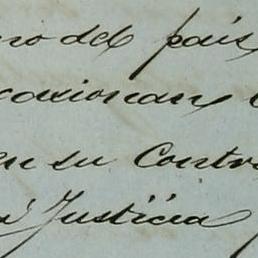 no del país
casionan
en su Contra
Justicia